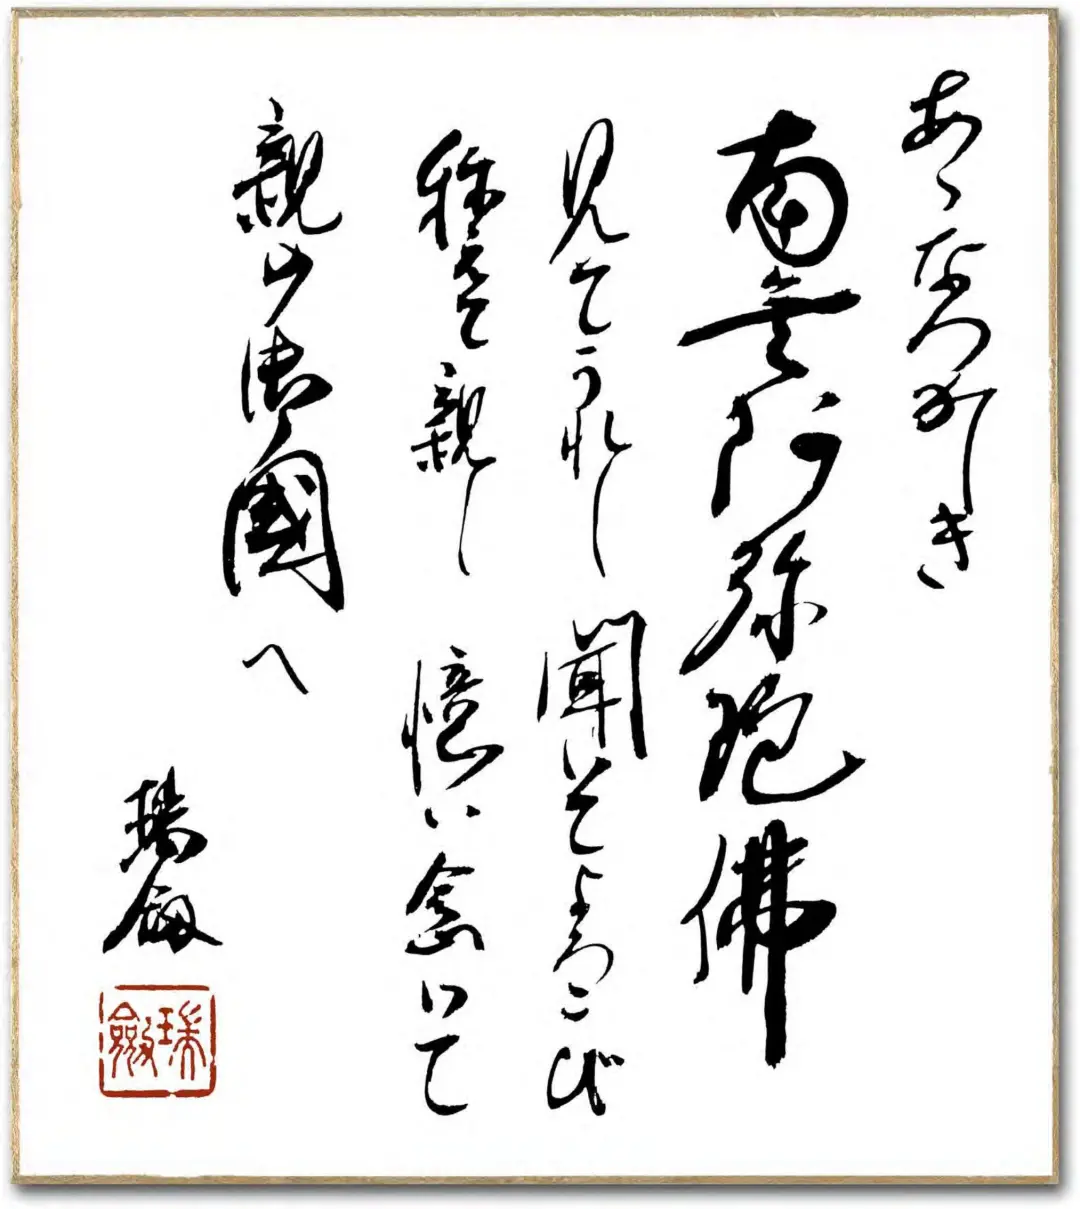 あゝなつかしき
南無阿弥陀佛
見てうれし 聞いてよろこび
称えて親し 憶い念いて
親の御國へ
瑞釼